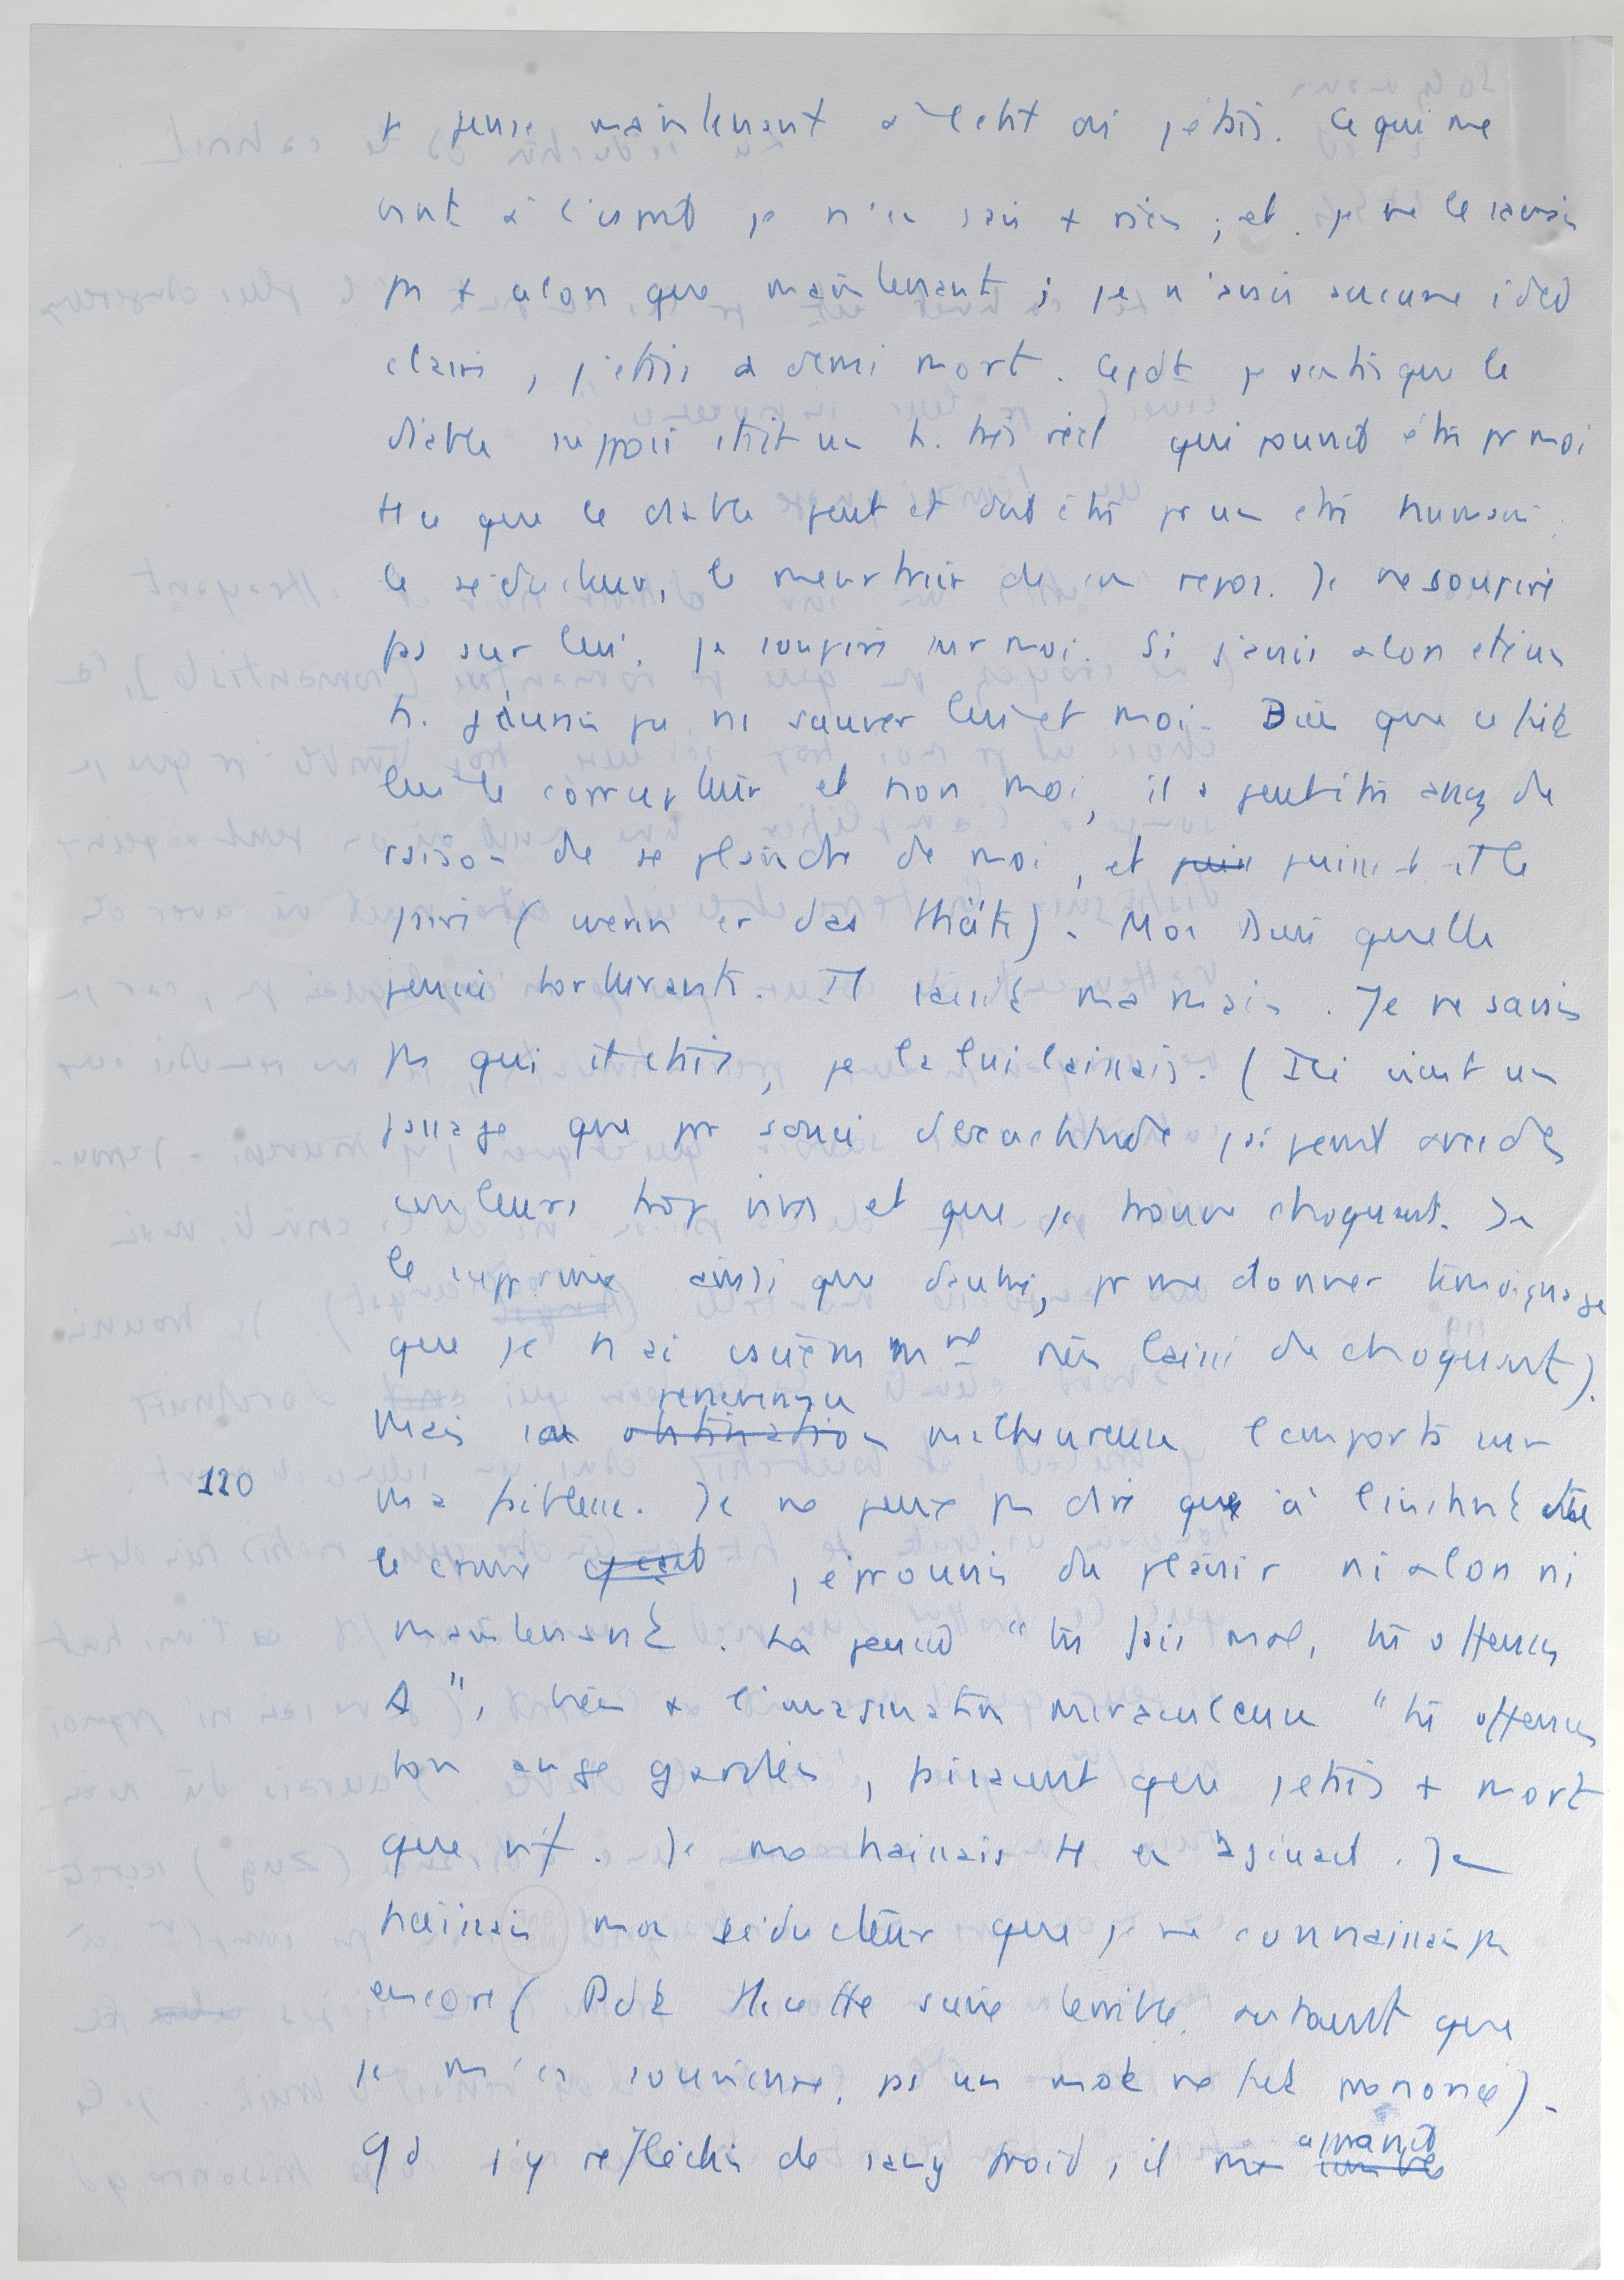 je pense maintenant à l'etat où j'etais. Ce qui me
vint à l'esprit je n'en sais + rien ; et je ne le savais
pas + alors que maintenant ; je n'avais aucune idée
claire, j'etais à demi mort. Cepdt je sentis que le
diable supposé était un h. très réel qui pouvait être pr moi
tt ce que le diable peut et doit être pr un être humain
le séducteur, le meurtrier de son repos. Je ne soupire
pas sur lui, je soupire sur moi. Si j'avais alors été un
h. j'aurais pu ns sauver lui et moi. Bien que ce fût
lui le corrupteur et non moi, il a peut être assez de
raison de se plaindre de moi, et puis puisse-t-il le
faire (wenn er das thäte). Mon Dieu quelle
pensée torturante. Il saisit ma main. Je ne savais
pas qui c'était, je la lui laissais. (Ici vient un
passage que pr souci d'exactitude j'ai peint avec des
couleurs trop vives et que je trouve choquant. Je
le supprime ainsi que d'autres, pr me donner témoignage
que je n'ai sciemment rien laissé de choquant).
persévérance
Mais son obstination malheureuse l'emporta sur
120 ma faiblesse. Je ne peux pas dire qu'à l'instant
le crime j'éprouvais du plaisir ni alors ni
maintenant. La pensée "tu fais mal, tu offenses
D", bien + l'imagination miraculeuse "tu offenses
ton ange gardien, faisaient que j'étais + mort
que vif. Je me haïssais tt en agissant. Je
haïssais mon séducteur que je ne connaissais pas
encore (Pdt tte cette scène terrible, autant que
je m'en souvienne, pas un mot ne fut prononcé).
Qd j'y réfléchis de sang froid, il me